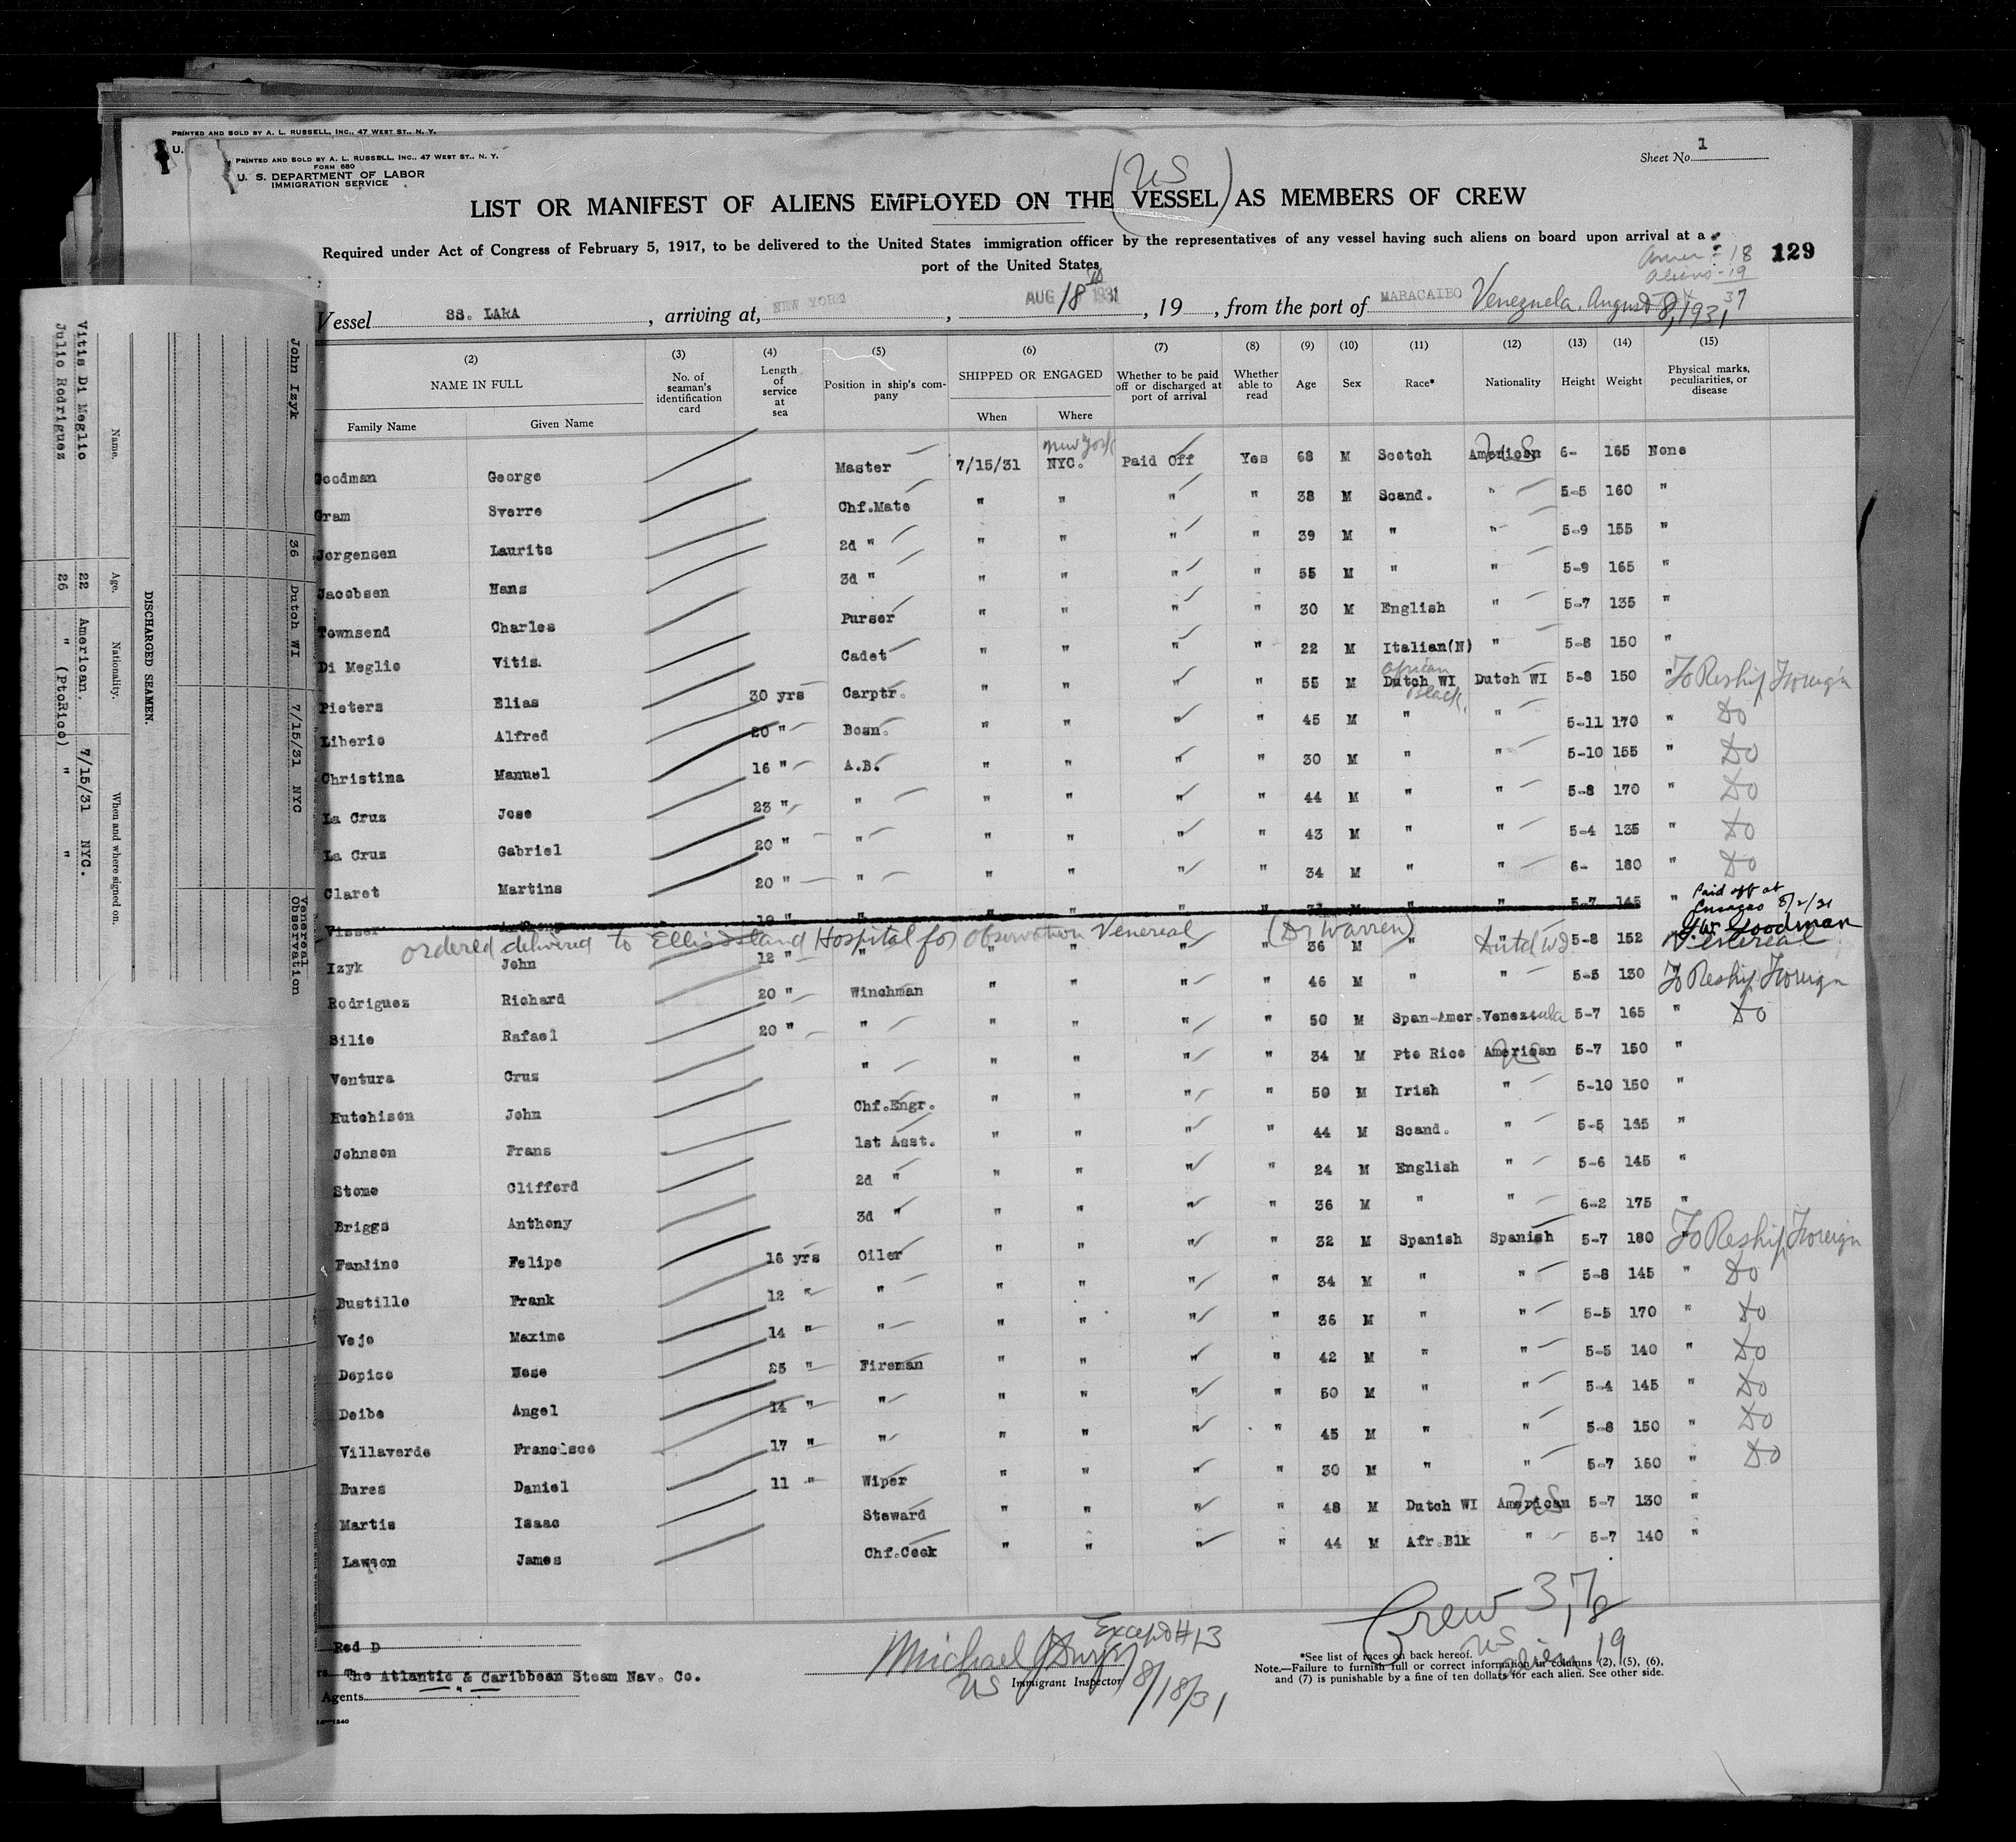 PRINTED AND SOLD BY A. L. RUSSELL, INC., 47 WEST ST., N. Y.
U.
PRINTED AND SOLD BY A. L. RUSSELL, INC., 47 WEST ST., N. Y.
FORM 680
U. S. DEPARTMENT OF LABOR
IMMIGRATION SERVICE
Sheet No. 1
US
LIST OR MANIFEST OF ALIENS EMPLOYED ON THE (VESSEL) AS MEMBERS OF CREW
Required under Act of Congress of February 5, 1917, to be delivered to the United States immigration officer by the representatives of any vessel having such aliens on board upon arrival at a
port of the United States
Amer - 18
Aliens - 19
37
129
Vessel SS. LARA, arriving at, NEW YORK, AUG 18th 1931, 19, from the port of MARACAIBO Venezuela, August 8, 1931
(2) (3) (4) (5) (6) (7) (8) (9) (10) (11) (12) (13) (14) (15)
NAME IN FULL No. of seaman's identification card Length of service at sea Position in ship's company SHIPPED OR ENGAGED Whether to be paid off or discharged at port of arrival Whether able to read Age Sex Race* Nationality Height Weight Physical marks, peculiarities, or disease
Family Name Given Name When Where
New York
Goodman George Master 7/15/31 NYC. Paid Off Yes 68 M Scotch American US 6- 165 None
Gram Sverre Chf.Mate " " " " 38 M Scand. " 5-5 160 "
Jorgensen Laurits 2d " " " " " 39 M " " 5-9 155 "
Jacobsen Hans 3d " " " " " 55 M " " 5-9 165 "
Townsend Charles Purser " " " " 30 M English " 5-7 135 "
Di Meglio Vitis. Cadet " " " " 22 M Italian(N) " 5-8 150 "
Pieters Elias 30 yrs Carptr. " " " " 55 M African Dutch WI Black. Dutch WI 5-8 150 " To Reship Foreign
Liberio Alfred 20 " Bosn. " " " " 45 M " " 5-11 170 " Do
Christina Manuel 16 " A.B. " " " " 30 M " " 5-10 155 " Do
La Cruz Jose 23 " " " " " " 44 M " " 5-8 170 " Do
La Cruz Gabriel 20 " " " " " " 43 M " " 5-4 135 " Do
Claret Martins 20 " " " " " " 34 M " " 6- 180 " Do
Visser Anthony 19 " " " " " " 31 M " " 5-7 145 " Paid off at Curacao 8/2/31 GW. Goodman
ordered delivered to Ellis Island Hospital for observation Venereal (Dr Warren)
Izyk John 12 " " " " " 36 M " Dutch WI 5-8 152 " Venereal
Rodriguez Richard 20 " Winchman " " " " 46 M " " 5-5 130 To Reship Foreign
Silie Rafael 20 " " " " " " 50 M Span-Amer. Venezuela 5-7 165 " Do
Ventura Cruz " " " " " 34 M Pto Rico American US 5-7 150 "
Hutchison John Chf.Engr. " " " " 50 M Irish " 5-10 150 "
Johnson Frans 1st Asst. " " " " 44 M Scand. " 5-5 165 "
Stone Clifford 2d " " " " " 24 M English " 5-6 145 "
Briggs Anthony 3d " " " " " 36 M " " 6-2 175 "
Fandino Felipe 16 yrs Oiler " " " " 32 M Spanish Spanish 5-7 180 " To Reship Foreign
Bustillo Frank 12 " " " " " " 34 M " " 5-8 145 " Do
Vejo Maximo 14 " " " " " " 36 M " " 5-5 170 " Do
Dopico Jose 25 " Fireman " " " " 42 M " " 5-5 140 " Do
Deibe Angel 14 " " " " " " 50 M " " 5-4 145 " Do
Villaverde Francisco 17 " " " " " " 45 M " " 5-8 150 " Do
Bures Daniel 11 " Wiper " " " " 30 M " " 5-7 160 " Do
Martis Isaac Steward " " " " 48 M Dutch WI American US 5-7 130 "
Lawson James Chf.Cook " " " " 44 M Afr.Blk " 5-7 140 "
Crew 37
US
alien 19
Red D
The Atlantic & Caribbean Steam Nav. Co.
Agents "
Except #13
Michael
US Immigrant Inspector 8/18/31
*See list of races on back hereof.
Note.—Failure to furnish full or correct information in columns (2), (5), (6),
and (7) is punishable by a fine of ten dollars for each alien. See other side.
John Izyk 36 Dutch WI 7/15/31 NYC Venereal Observation
DISCHARGED SEAMEN.
Name. Age. Nationality. When and where signed on.
Vitis Di Meglio 22 American. 7/15/31 NYC.
Julio Rodriguez 26 " (PtoRico) " "